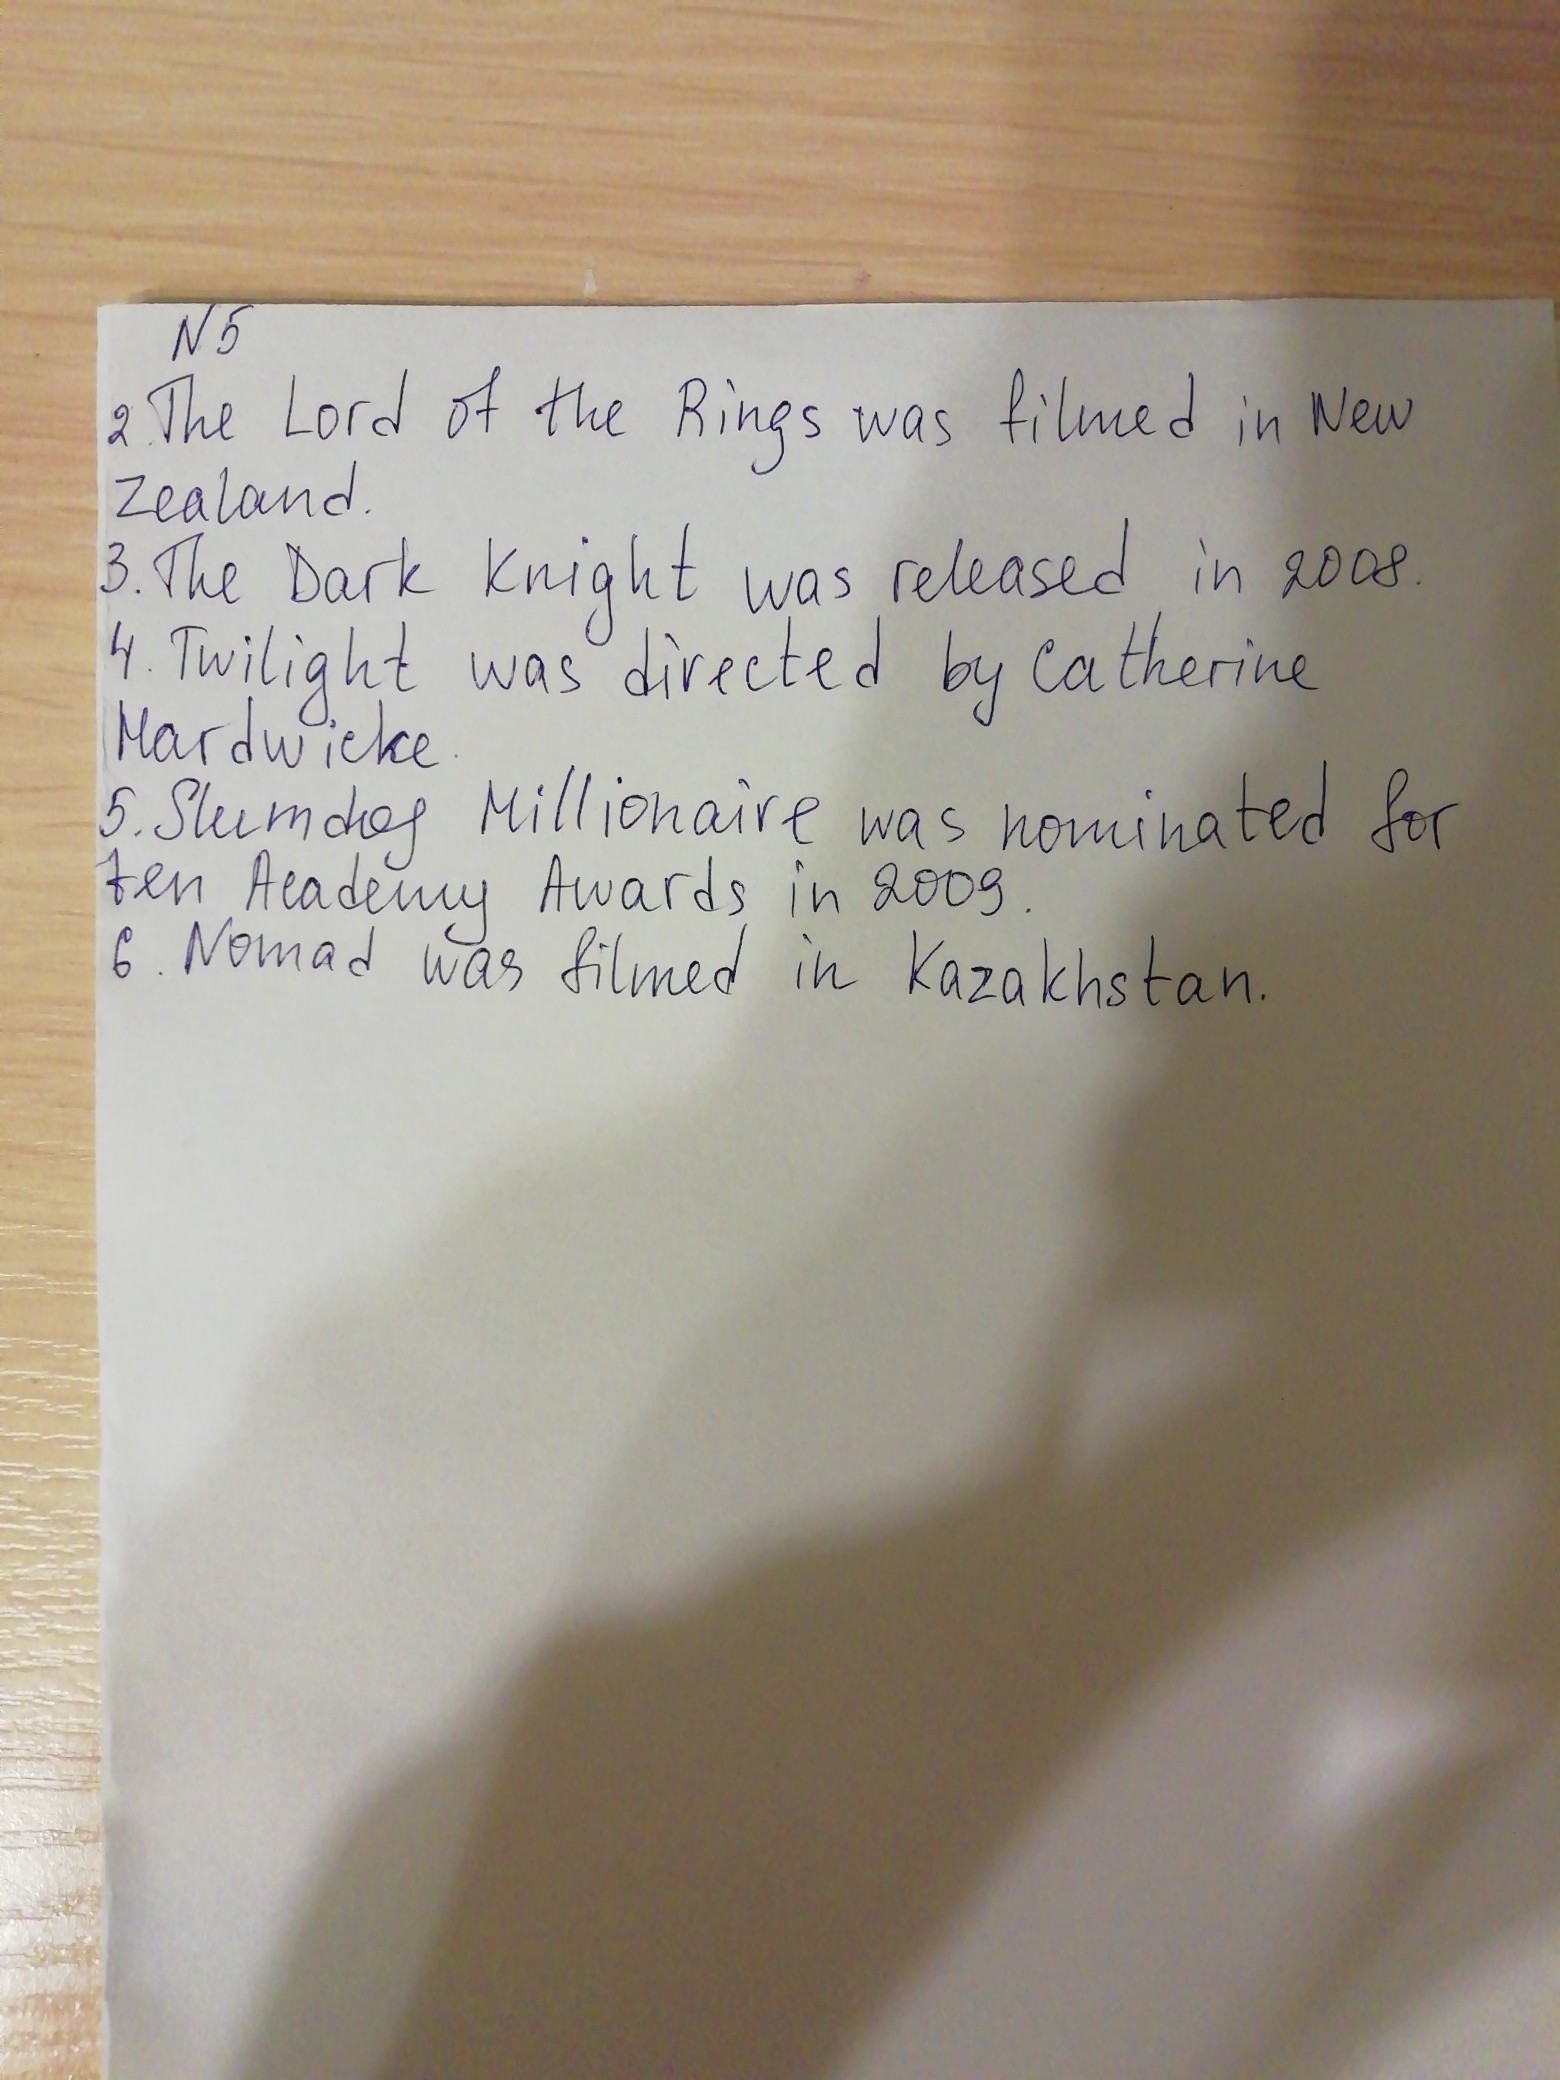 N5
2. The Lord of the Rings was filmed in New
Zealand.
3. The Dark Knight was released in 2008.
4. Twilight was directed by Catherine
Hardwicke.
5. Slumdog Millionaire was nominated for
ten Academy Awards in 2009.
6. Nomad was filmed in Kazakhstan.